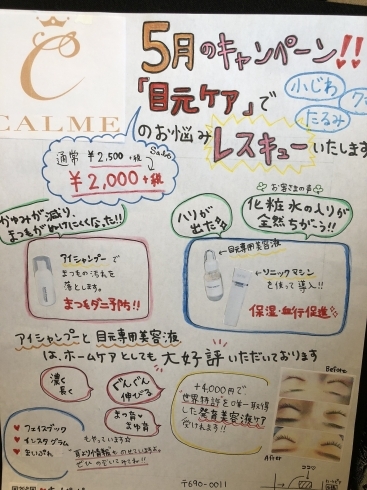 CALME
5月のキャンペーン!!
「目元ケア」で
小じわ
たるみ
のお悩み
レスキューいたします
通常 ¥2,500+税
¥2,000+税
かゆみが減り、
まつ毛がぬけにくくなった!!
ハリが
出た
お客さまの声
化粧水の入りが
全然ちがう!!
アイシャンプーで
まつ毛の汚れを
落とします。
まつ毛ダニ予防!!
←目元専用美容液
←ソニックマシン
を使って導入!!
保湿・血行促進
アイシャンプーと目元専用美容液
は、ホームケアとしても大好評いただいております
濃く
長く
ぐんぐん
伸びる
まつ育
まゆ育
+4,000円で
世界特許を
取得
した発育美容液ケア
受けれます!!
Before
After
フェイスブック
インスタグラム
まいぷれ
もやっています☆
〒690-0011